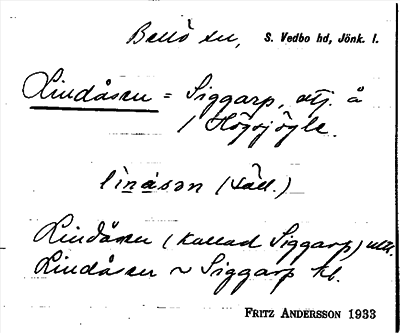 Bellö sn, S. Vedbo hd, Jönk. l.
Lindåsen = Siggarp, utj. å
1 Högsjögle.
lìnåsən (säll.)
Lindåsen (kallad Siggarp)
Lindåsen ~ Siggarp kl.
FRITZ ANDERSSON 1933